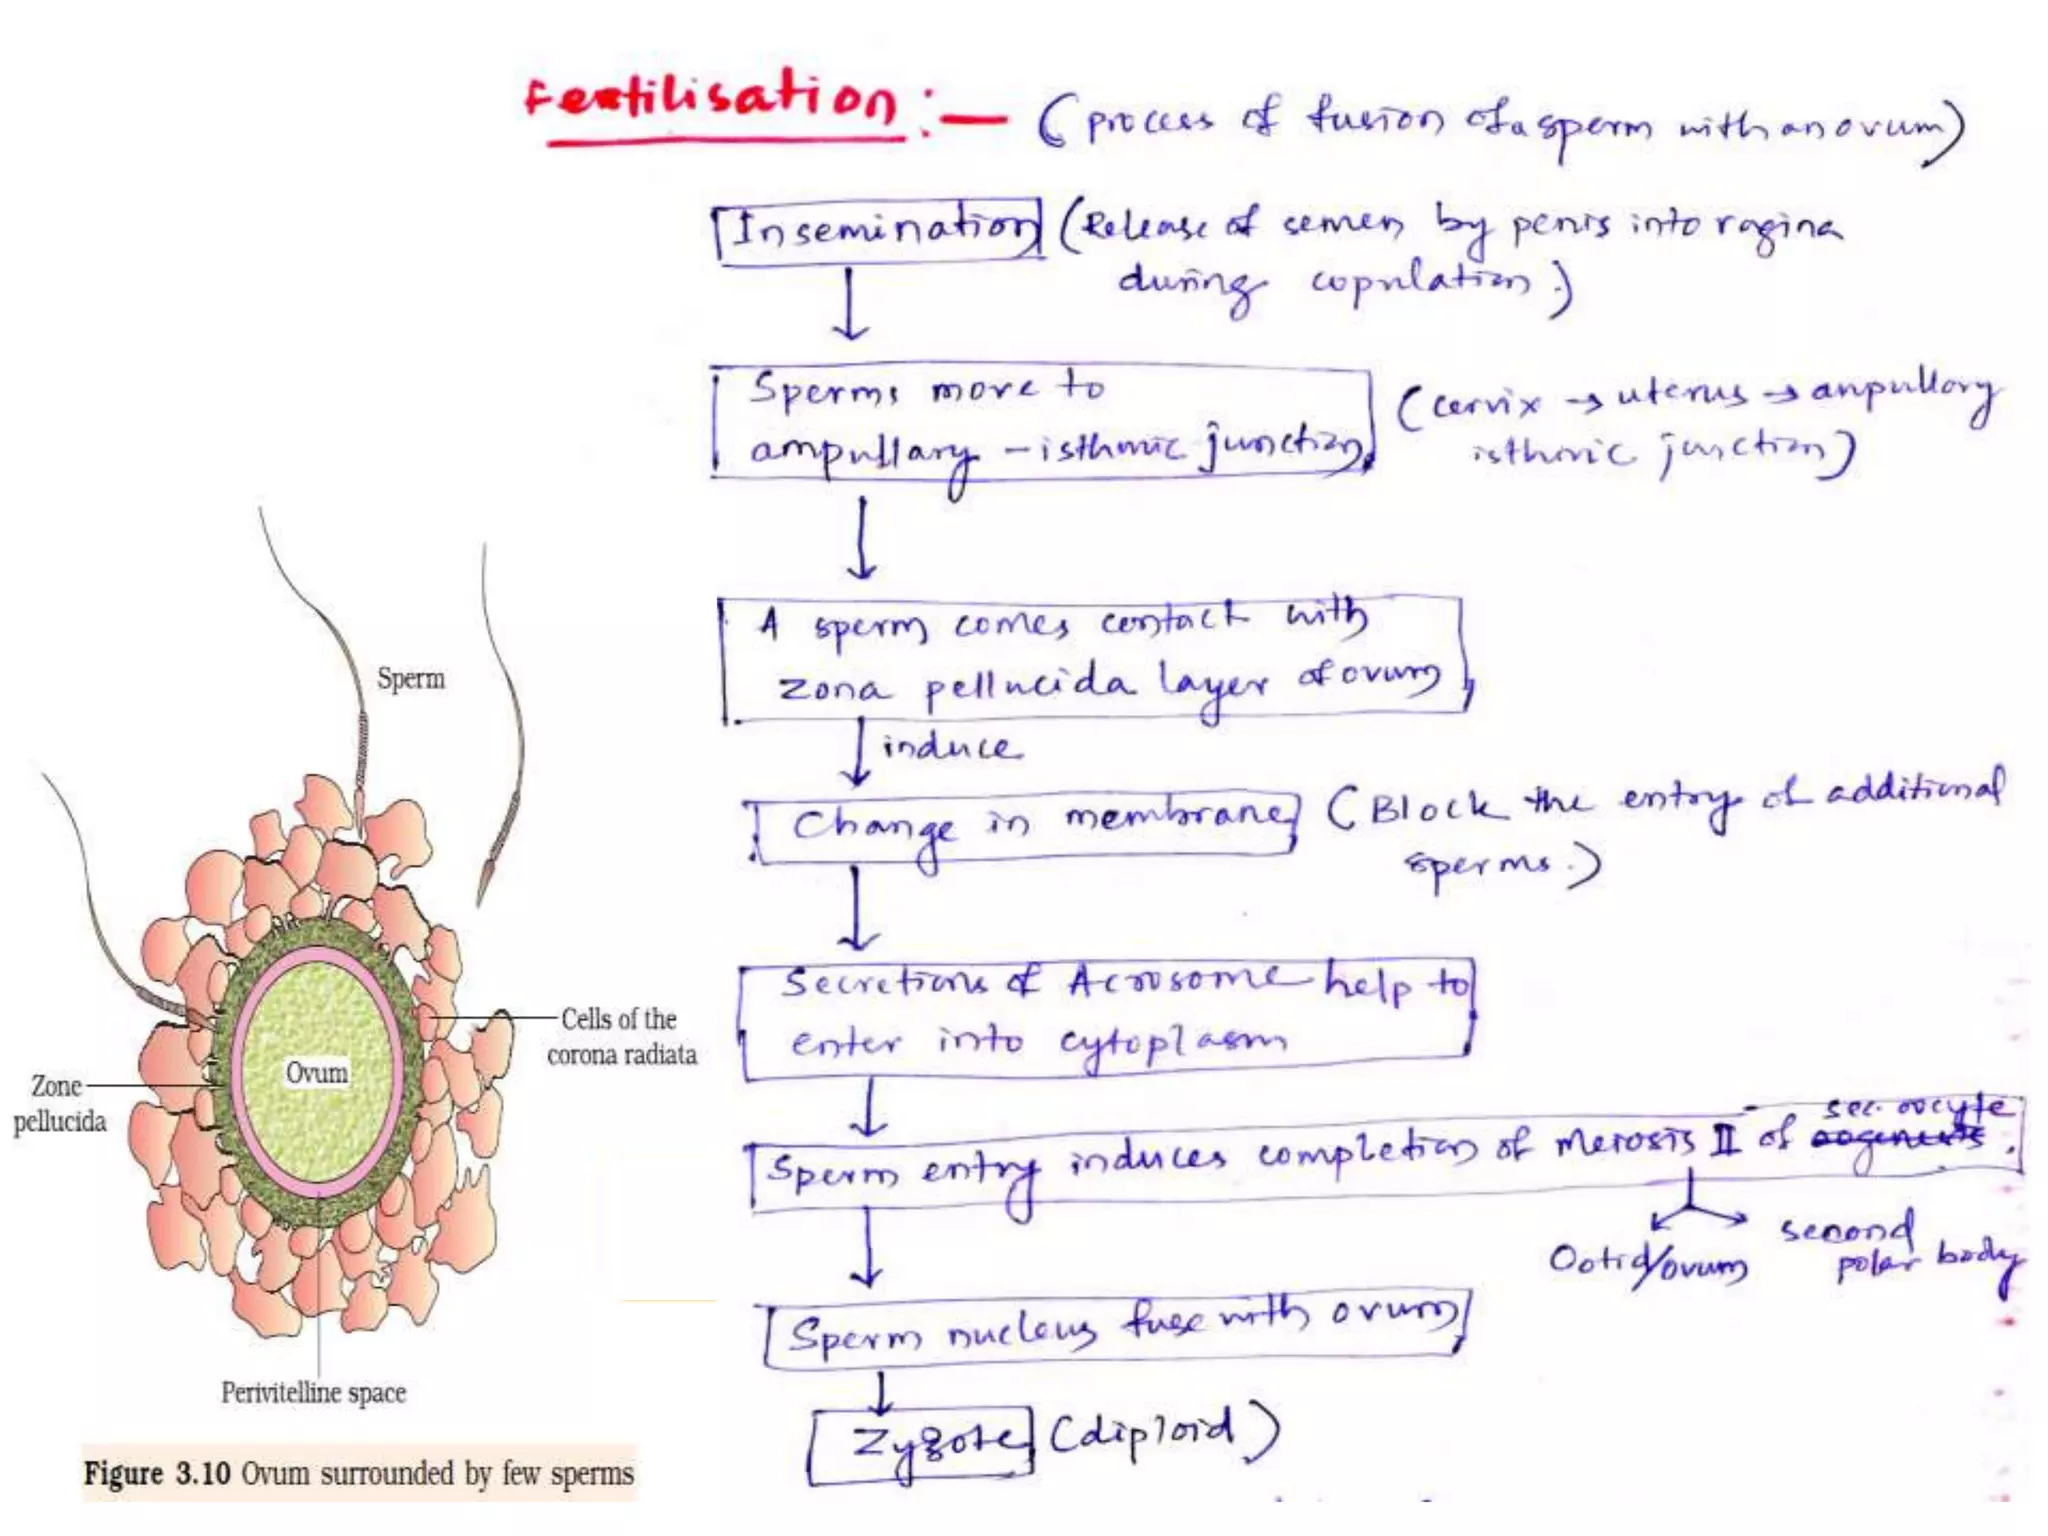 Fertilisation :— (process of fusion of a sperm with an ovum)
Insemination (Release of semen by penis into vagina
during copulation.)
Sperms move to
ampullary – isthmic junction
(cervix → uterus → ampullary
isthmic junction)
A sperm comes contact with
zona pellucida layer of ovum
induce
Change in membrane (Block the entry of additional
sperms.)
Secretions of Acrosome help to
enter into cytoplasm
Sperm entry induces completion of Meiosis II of sec. oocyte oogenesis.
Ootid/ovum
second
polar body
Sperm nucleus fuse with ovum
Zygote (diploid)
Sperm
Cells of the
corona radiata
Ovum
Zone
pellucida
Perivitelline space
Figure 3.10 Ovum surrounded by few sperms